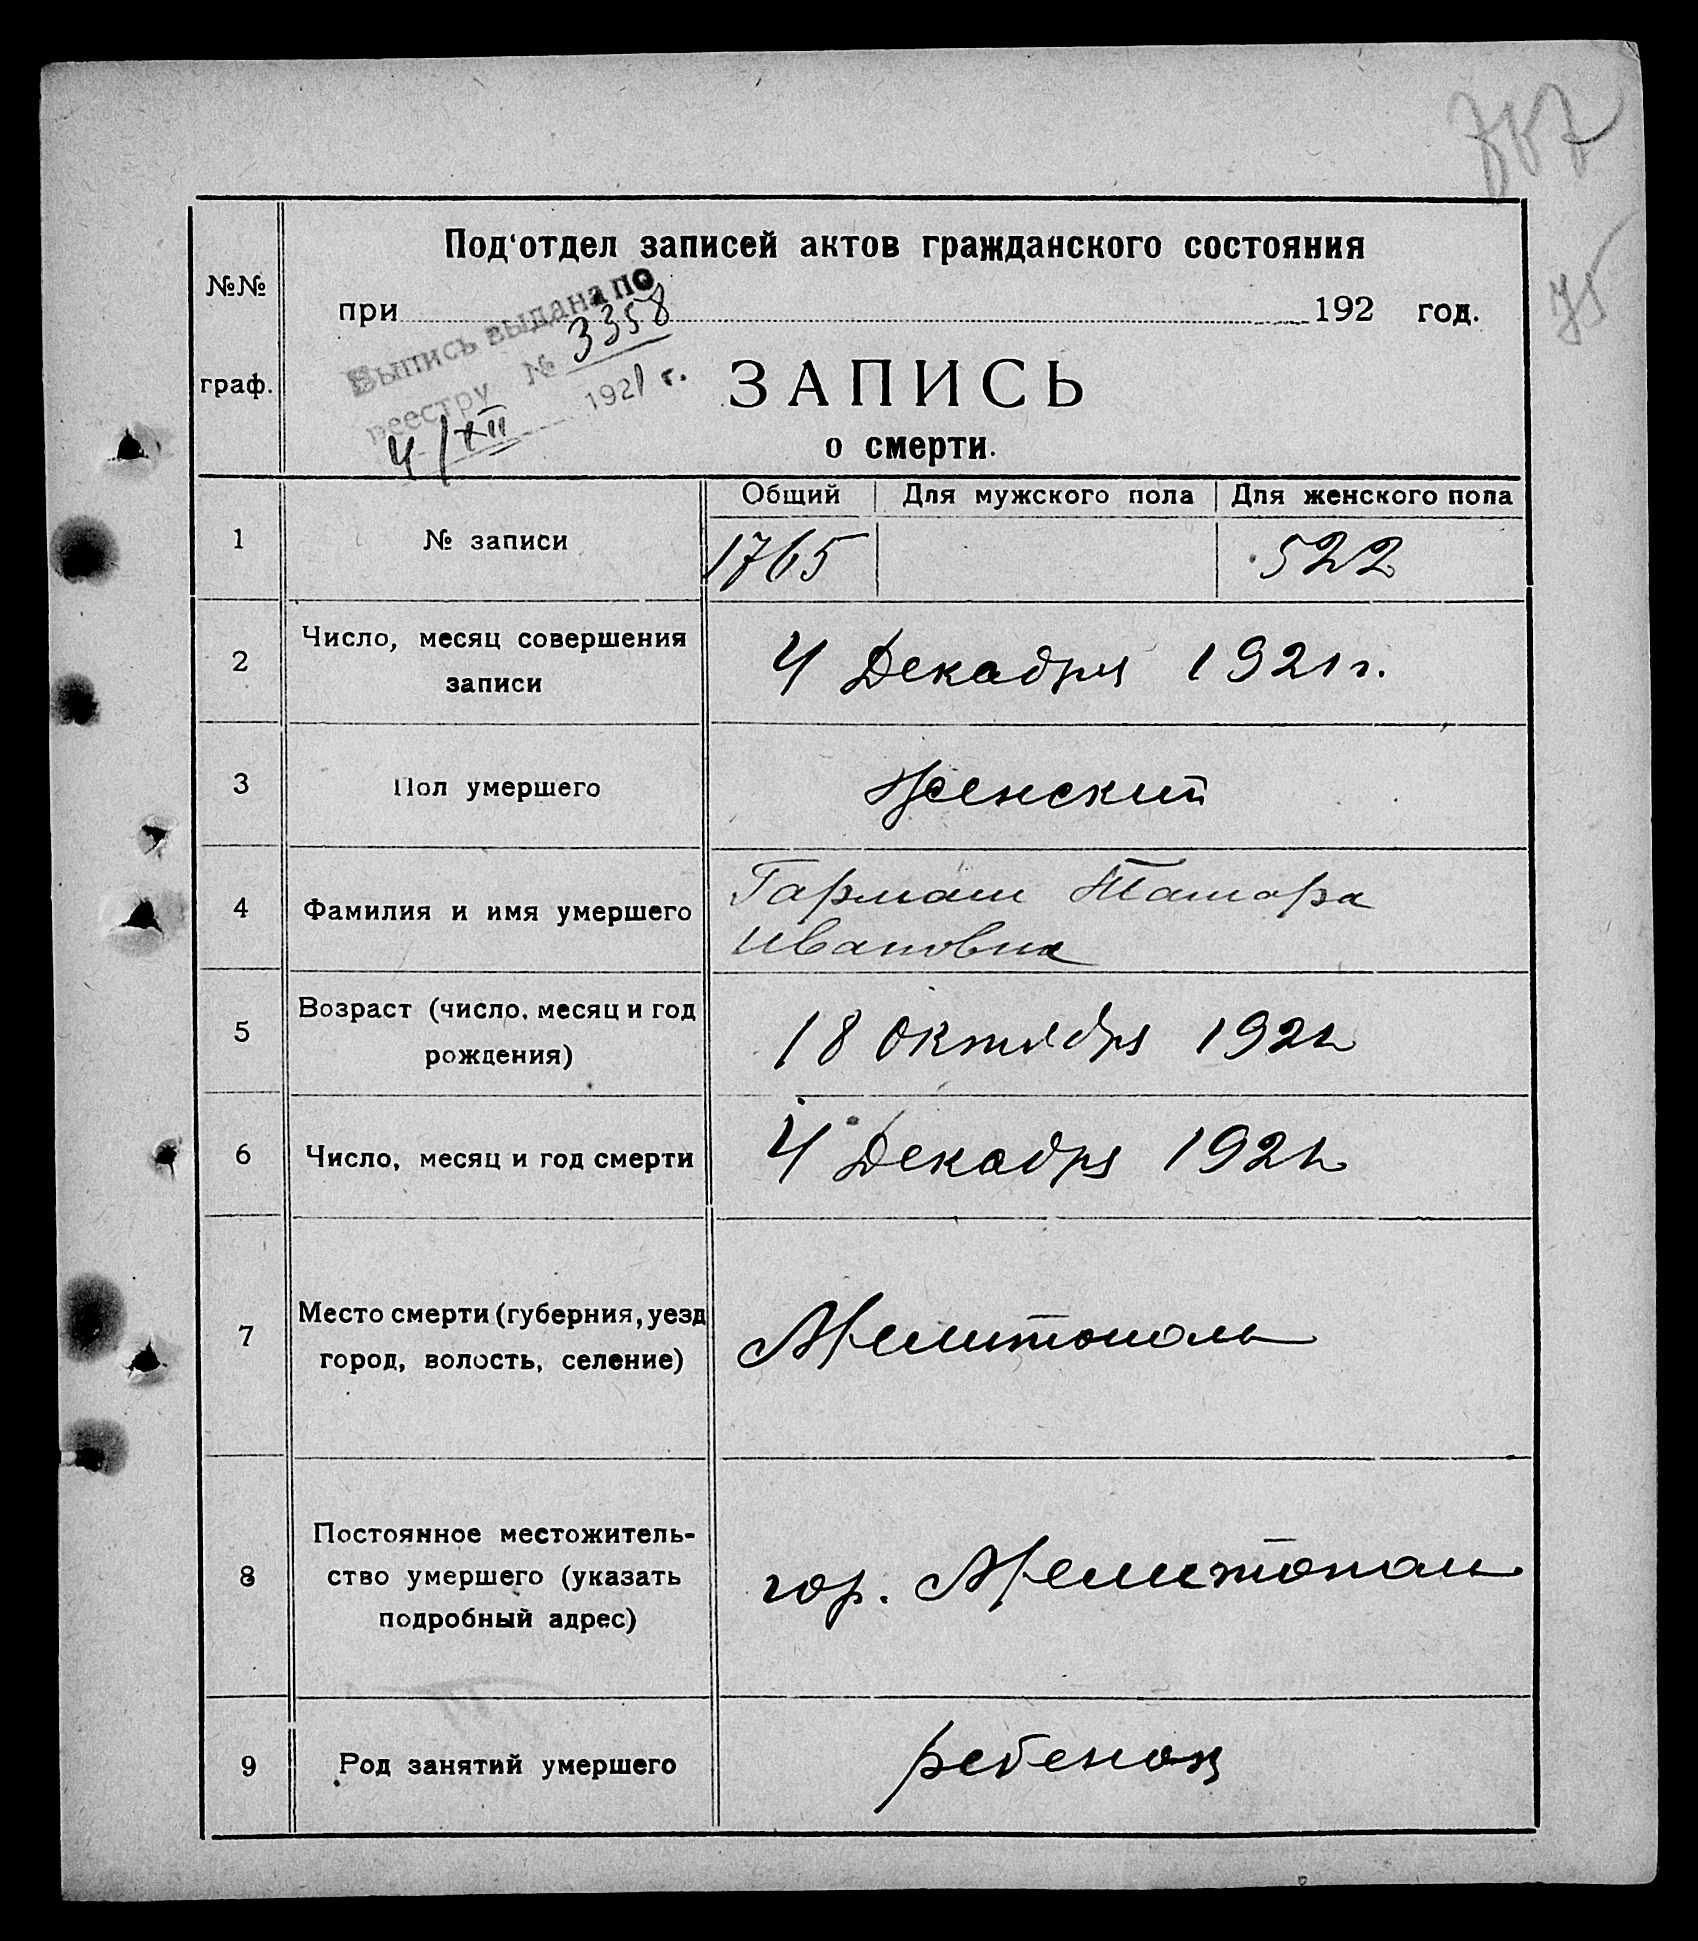 757
75
№№
граф.
Под‘отдел записей актов гражданского состояния
при 192 год.
Выпись выдана по
реестру № 3358
4/XII 1921 г.
ЗАПИСЬ
о смерти.
Общий Для мужского пола Для женского пола
1 № записи 1765 522
2 Число, месяц совершения
записи
4 Декабря 1921 г.
3 Пол умершего Женский
4 Фамилия и имя умершего
Гармаш Тамара
Ивановна
5 Возраст (число, месяц и год
рождения)
18 октября 1921
6 Число, месяц и год смерти 4 Декабря 1921
7 Место смерти (губерния, уезд
город, волость, селение)
Мелитополь
8 Постоянное местожитель-
ство умершего (указать
подробный адрес)
гор. Мелитополь
9 Род занятий умершего ребенок